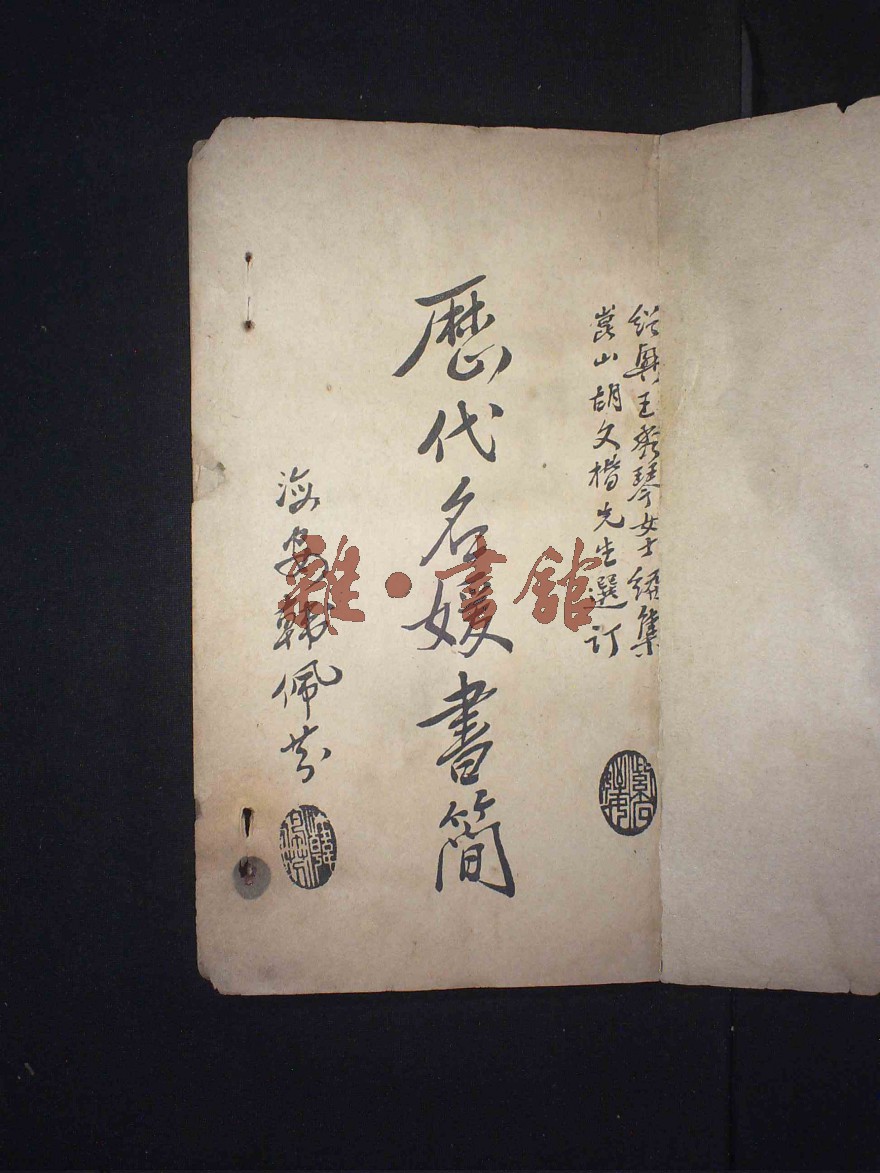 紹興王秀琴女士編集
崑山胡文楷先生選訂
歷代名媛書簡
海安韓佩芬
雜·書館